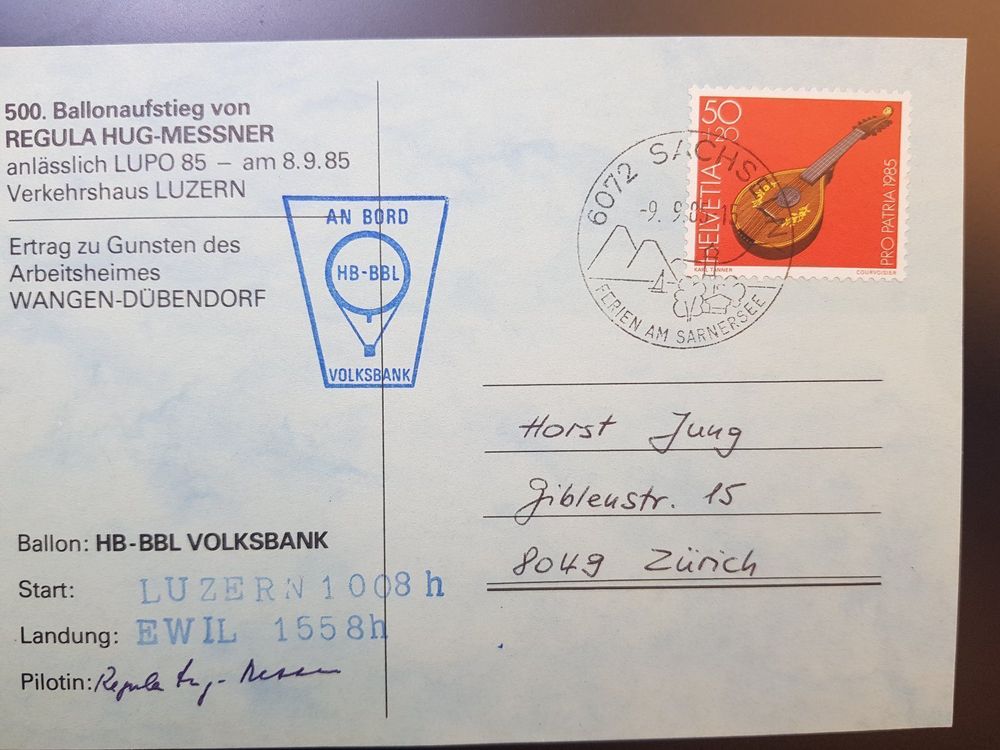 500. Ballonaufstieg von
REGULA HUG-MESSNER
anlässlich LUPO 85 – am 8.9.85
Verkehrshaus LUZERN
Ertrag zu Gunsten des
Arbeitsheimes
WANGEN-DÜBENDORF
AN BORD
HB-BBL
VOLKSBANK
50
+20
HELVETIA
PRO PATRIA 1985
KARL TANNER
COURVOISIER
6072 SACHSELN
-9. 9.85-15
FERIEN AM SARNERSEE
Horst Jung
Giblenstr. 15
8049 Zürich
Ballon: HB-BBL VOLKSBANK
Start: LUZERN 1008 h
Landung: EWIL 1558h
Pilotin: Regula Hug-Messner